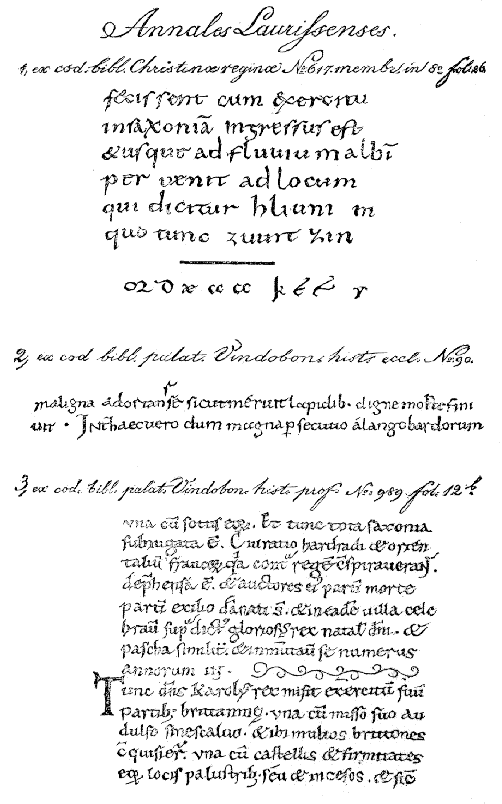 Annales Laurissenses.
1, ex cod. bibl. Christinæ reginæ No. 617. membr. in 8o fol. 26.
cum exercitu
in saxoniā ingressus est
& usque ad fluuium albī
per uenit ad locum
qui dicitur hliuni in
quo tunc
2, ex cod bibl. palat. Vindobon. hist. eccl. No. 90.
maligna adorsan se sicut meruit lapidib. digne morte fini
uit . In thaec uero dum magna psecutio a langobardorum
3, ex cod. bibl. palat. Vindobon. hist. prof. No. 989. fol. 12b.
una cū sociis eius. Et tunc tota saxonia
subiugata ē. Coniuratio hardradi & orien
taliū francorū
dephensa ē. & auctores eius partī morte
partī exilio dānati s̄. & in eadē uilla cele
brauī sup dictus gloriosus rex natal dni. &
pascha similit. & inmutauī se numerus
annorum in
Tunc dns Karolus rex misit exercitū suū
partib; brittanniae. una cū misso suo au
dulfo sinescalco. & ibi multos brittones
cquisier. una cū castellis & firmitates
eoȝ locis palustrib; seu & incesos. & sic